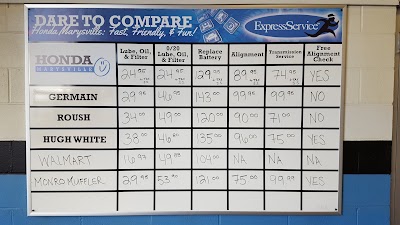 DARE TO COMPARE
Honda Marysville: Fast, Friendly, & Fun!
ExpressService
Lube, Oil, & Filter 0/20 Lube, Oil, & Filter Replace Battery Alignment Transmission Service Free Alignment Check
HONDA MARYSVILLE 24.95 24.95 29.95 89.95 74.95 YES
GERMAIN 29.95 46.95 143.00 99.95 99.95 NO
ROUSH 34.00 49.00 120.00 90.00 71.00 NO
HUGH WHITE 38.00 135.00 96.00 75.00 YES
WALMART 16.99 49.88 104.00 NA NA NA
MONRO MUFFLER 29.98 121.00 75.00 99.99 YES